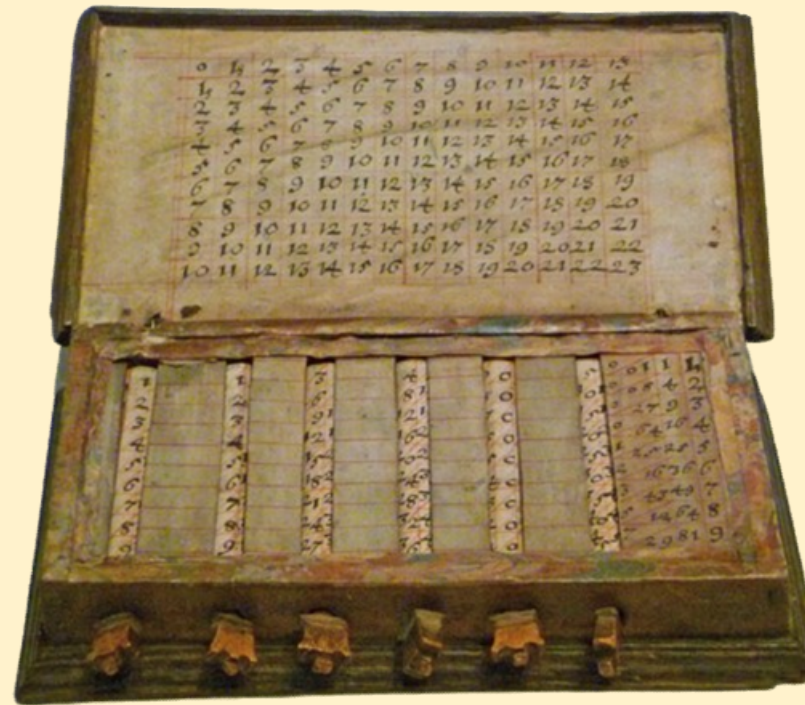 0 1 2 3 4 5 6 7 8 9 10 11 12 13
1 2 3 4 5 6 7 8 9 10 11 12 13 14
2 3 4 5 6 7 8 9 10 11 12 13 14 15
3 4 5 6 7 8 9 10 11 12 13 14 15 16
4 5 6 7 8 9 10 11 12 13 14 15 16 17
5 6 7 8 9 10 11 12 13 14 15 16 17 18
6 7 8 9 10 11 12 13 14 15 16 17 18 19
7 8 9 10 11 12 13 14 15 16 17 18 19 20
8 9 10 11 12 13 14 15 16 17 18 19 20 21
9 10 11 12 13 14 15 16 17 18 19 20 21 22
10 11 12 13 14 15 16 17 18 19 20 21 22 23
1 1 3 4 0 0 01 1 1
2 2 6 0 0 08 4 2
3 3 9 0 27 9 3
4 4 0 64 16 4
5 5 0 1 25 25 5
6 6 0 2 16 36 6
7 7 0 3 43 49 7
8 8 0 5 12 64 8
9 9 0 7 29 81 9